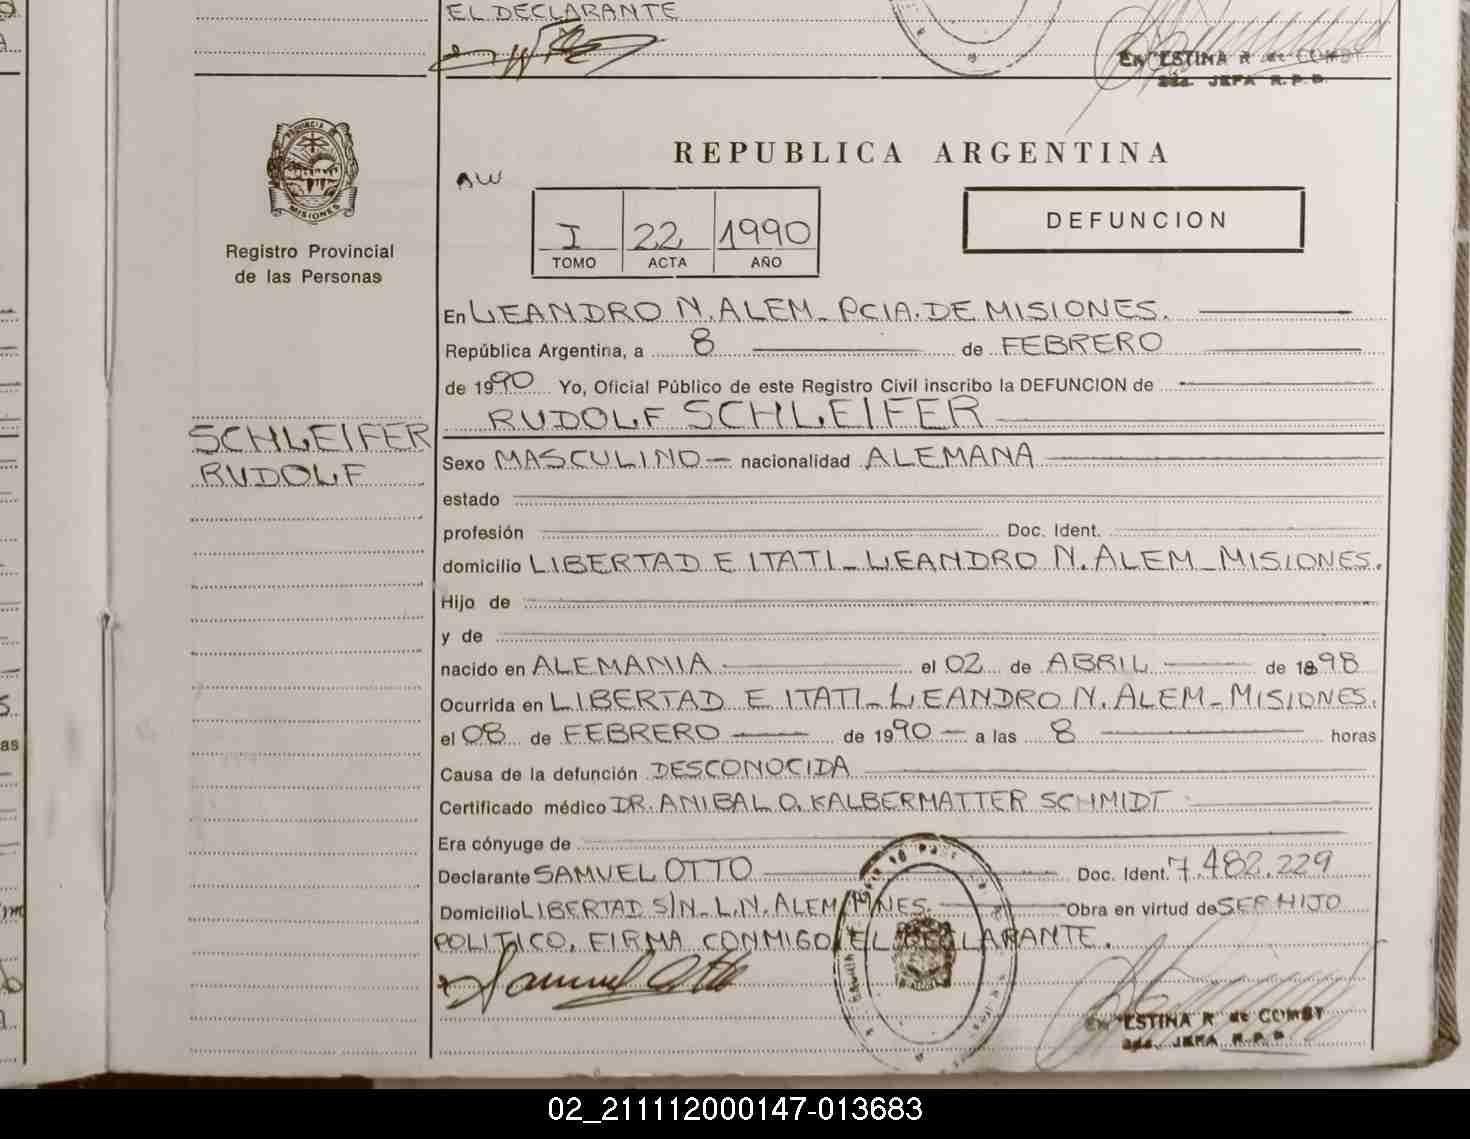 EL DECLARANTE
ERNESTINA R de COMBY
2da. JEFA R.P.P.
PROVINCIA DE
MISIONES
Registro Provincial
de las Personas
SCHLEIFER
RUDOLF
REPUBLICA ARGENTINA
AW
I 22 1990
TOMO ACTA AÑO
DEFUNCION
En LEANDRO N. ALEM_ PCIA. DE MISIONES.
República Argentina, a 8 de FEBRERO
de 1990 Yo, Oficial Público de este Registro Civil inscribo la DEFUNCION de
RUDOLF SCHLEIFER
Sexo MASCULINO — nacionalidad ALEMANA
estado
profesión Doc. Ident.
domicilio LIBERTAD E ITATI_ LEANDRO N. ALEM_ MISIONES.
Hijo de
y de
nacido en ALEMANIA el 02 de ABRIL de 1898
Ocurrida en LIBERTAD E ITATI_ LEANDRO N. ALEM_ MISIONES.
el 08 de FEBRERO de 1990 — a las 8 horas
Causa de la defunción DESCONOCIDA
Certificado médico DR. ANIBAL O. KALBERMATTER SCHMIDT
Era cónyuge de
Declarante SAMUEL OTTO Doc. Ident. 7.482.229
Domicilio LIBERTAD S/N_ L.N. ALEM MNES. Obra en virtud de SER HIJO
POLITICO. FIRMA CONMIGO EL DECLARANTE.
Samuel Otto
2da. JEFA R.P.P.
02_211112000147-013683